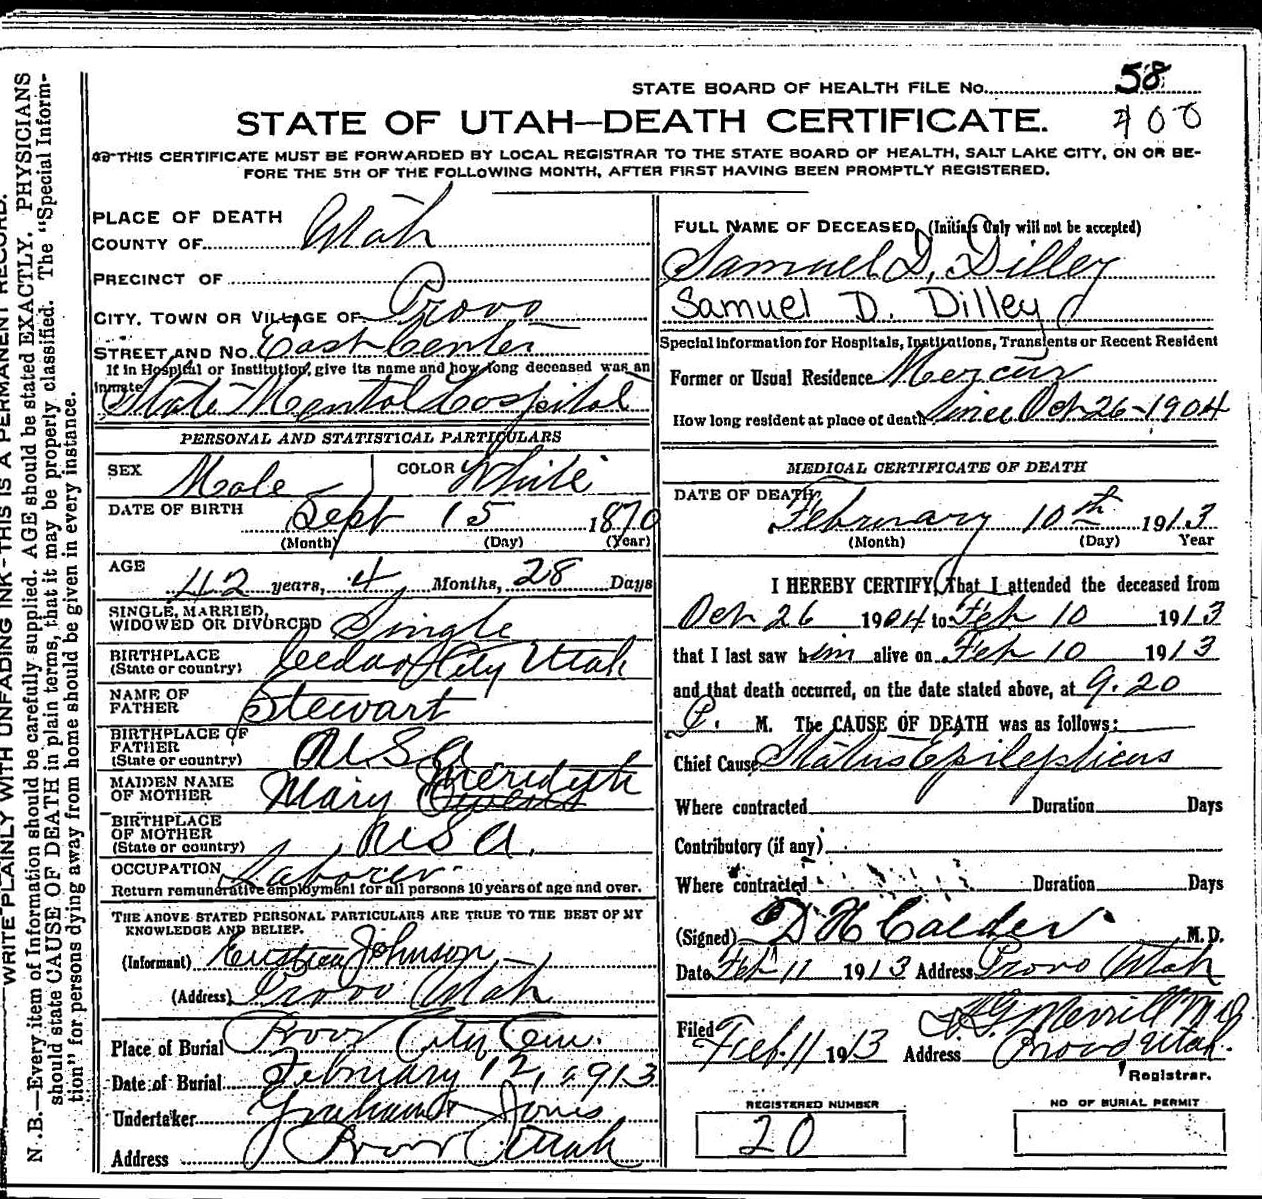 WRITE PLAINLY WITH UNFADING INK-THIS IS A PERMANENT RECORD.
N.B.—Every item of Information should be carefully supplied. AGE should be stated EXACTLY. PHYSICIANS
should state CAUSE OF DEATH in plain terms, that it may be properly classified. The "Special Inform-
tion" for persons dying away from home should be given in every instance.
STATE BOARD OF HEALTH FILE No. 58
STATE OF UTAH—DEATH CERTIFICATE. 400
THIS CERTIFICATE MUST BE FORWARDED BY LOCAL REGISTRAR TO THE STATE BOARD OF HEALTH, SALT LAKE CITY, ON OR BE-
FORE THE 5TH OF THE FOLLOWING MONTH, AFTER FIRST HAVING BEEN PROMPTLY REGISTERED.
PLACE OF DEATH
COUNTY OF Utah
PRECINCT OF
CITY, TOWN OR VILLAGE OF Provo
STREET AND No. East Center
If in Hospital or Institution, give its name and how long deceased was an
inmate State Mental Hospital
PERSONAL AND STATISTICAL PARTICULARS
SEX Male COLOR White
DATE OF BIRTH Sept 15 1870
(Month) (Day) (Year)
AGE 42 years, 4 Months, 28 Days
SINGLE, MARRIED,
WIDOWED OR DIVORCED Single
BIRTHPLACE
(State or country) Cedar City Utah
NAME OF
FATHER Stewart
BIRTHPLACE OF
FATHER
(State or country) U S a
MAIDEN NAME
OF MOTHER Mary Owens Meredith
BIRTHPLACE
OF MOTHER
(State or country) U S a.
OCCUPATION Laborer
Return remunerative employment for all persons 10 years of age and over.
THE ABOVE STATED PERSONAL PARTICULARS ARE TRUE TO THE BEST OF MY
KNOWLEDGE AND BELIEF.
(Informant) Johnson
(Address) Provo Utah
Place of Burial Provo City Cem.
Date of Burial February 12, 1913
Undertaker Graham & Jones
Address Provo Utah
FULL NAME OF DECEASED, (Initials Only will not be accepted)
Samuel D. Dilley
Samuel D. Dilley
Special information for Hospitals, Institutions, Transients or Recent Resident
Former or Usual Residence Mercur
How long resident at place of death Since Oct 26-1904
MEDICAL CERTIFICATE OF DEATH
DATE OF DEATH February 10th 1913
(Month) (Day) Year
I HEREBY CERTIFY, That I attended the deceased from
Oct 26 1904 to Feb 10 1913
that I last saw him alive on Feb 10 1913
and that death occurred, on the date stated above, at 9.20
P. M. The CAUSE OF DEATH was as follows:
Chief Cause Status Epilepticus
Where contracted Duration Days
Contributory (if any)
Where contracted Duration Days
(Signed) D H Calder M.D.
Date Feb 11 1913 Address Provo Utah
Filed Feb. 11 1913 Merrill M D
Address Provo Utah.
Registrar.
REGISTERED NUMBER
20
NO OF BURIAL PERMIT